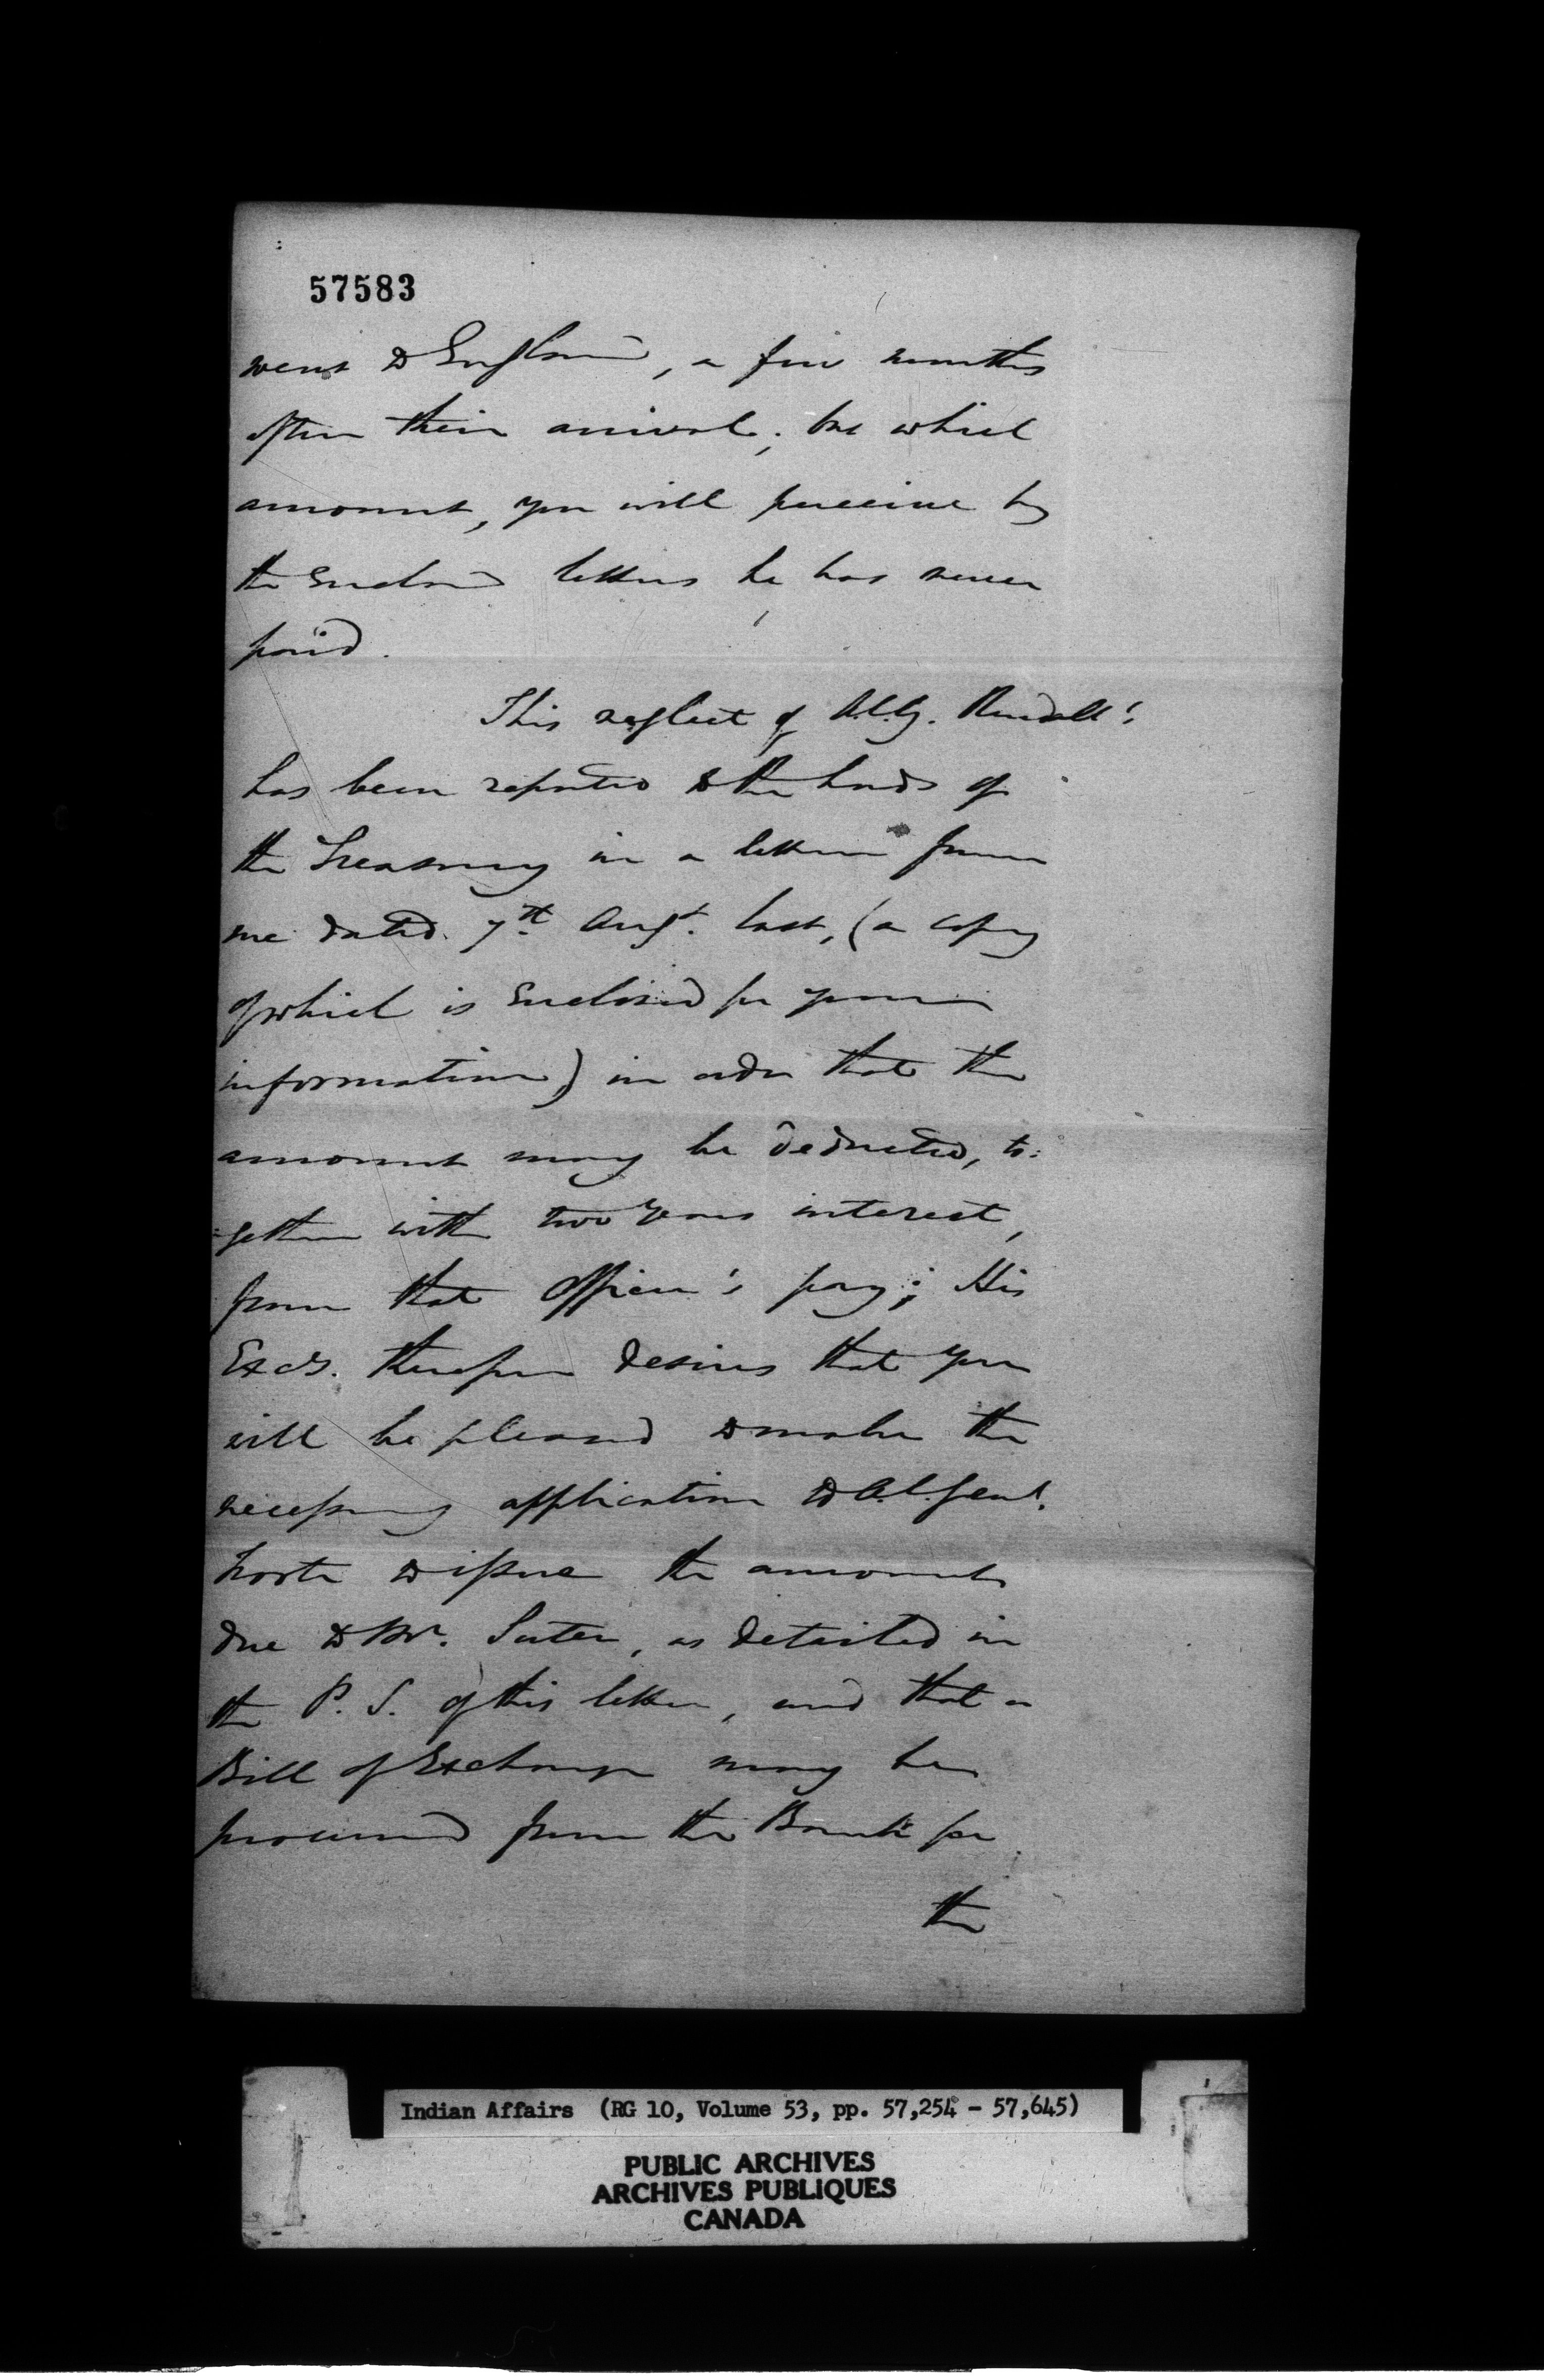 57583
went to England, a few months
after their arrival; but which
amount, you will perceive by
the Enclosed letters he has never
paid.
This neglect of A.C.G. Rendall's
has been reported to the Lords of
the Treasury in a letter from
me dated 7th Augt. last, (a copy
of which is Enclosed for your
information) in order that the
amount may be deducted, to:
:gether with two years interest,
from that officer's pay; His
Excy. therefore desires that you
will be pleased to make the
necessary application to A.C. Genl.
to issue the amount
due to Mr. Suter, as detailed in
the P.S. of this letter, and that a
Bill of Exchange may be
procured from the Bank for
the
Indian Affairs (RG 10, Volume 53, pp. 57,254 - 57,645)
PUBLIC ARCHIVES
ARCHIVES PUBLIQUES
CANADA